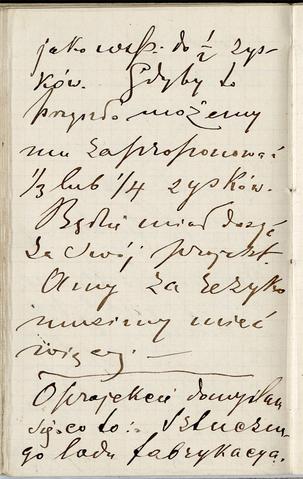 jako wsp. do ½ zys-
ków. Gdyby to
przyszło możemy
mu zaproponować
1/3 lub 1/4 zysków.
Będzie miał dosyć
za swój projekt.
A my za ryzyko
musimy mieć
więcej. —
O projekcie domyślam
się co to: Sztuczne-
go lodu fabrykacya.